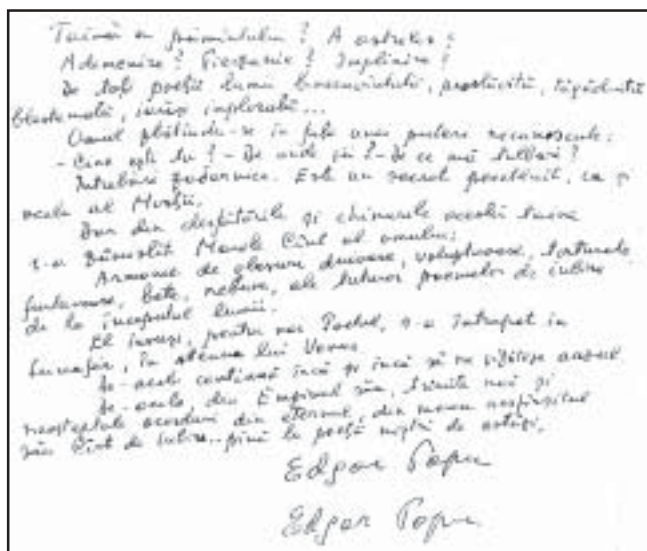 Taină a pămîntului? A astrelor?
Ademenire? Pierzanie? Implinire?
De toți poeții lumii binecuvîntată, preaslăvită, tăgăduită
blestemată, iarăși implorată...
Omul plătindu-se în fața unei puteri necunoscute:
- Cine ești tu? - De unde vii? - De ce mă tulburi?
Intrebare zadarnică. Este un secret pecetluit, ca și
acela al Morții.
Dar din desfătările și chinurile acestei taine
s-a zămislit Marele Cînt al omului:
Armonie de glasuri duioase, voluptuoase, torturate
furtunoase, bete, nebune, ale tuturor poemelor de iubire
de la începutul lumii.
El însuși, pentru noi Poetul, s-a întrupat in
Luceafăr, în steaua lui Venus
De-acolo continuă încă și încă să ne vrăjească auzul.
De-acolo, din Empireul său, trimite noi și
neașteptate acorduri din eternul, din mereu nesfîrșitul
său Cînt de iubire.. pînă la poeții noștri de astăzi.
Edgar Papu
Edgar Papu